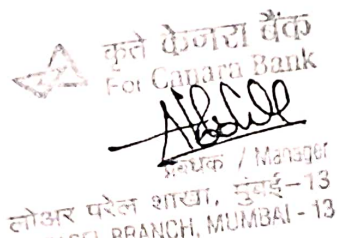 कृते केनरा बैंक
For Canara Bank
प्रबंधक / Manager
लोअर परेल शाखा, मुंबई-13
BRANCH, MUMBAI - 13